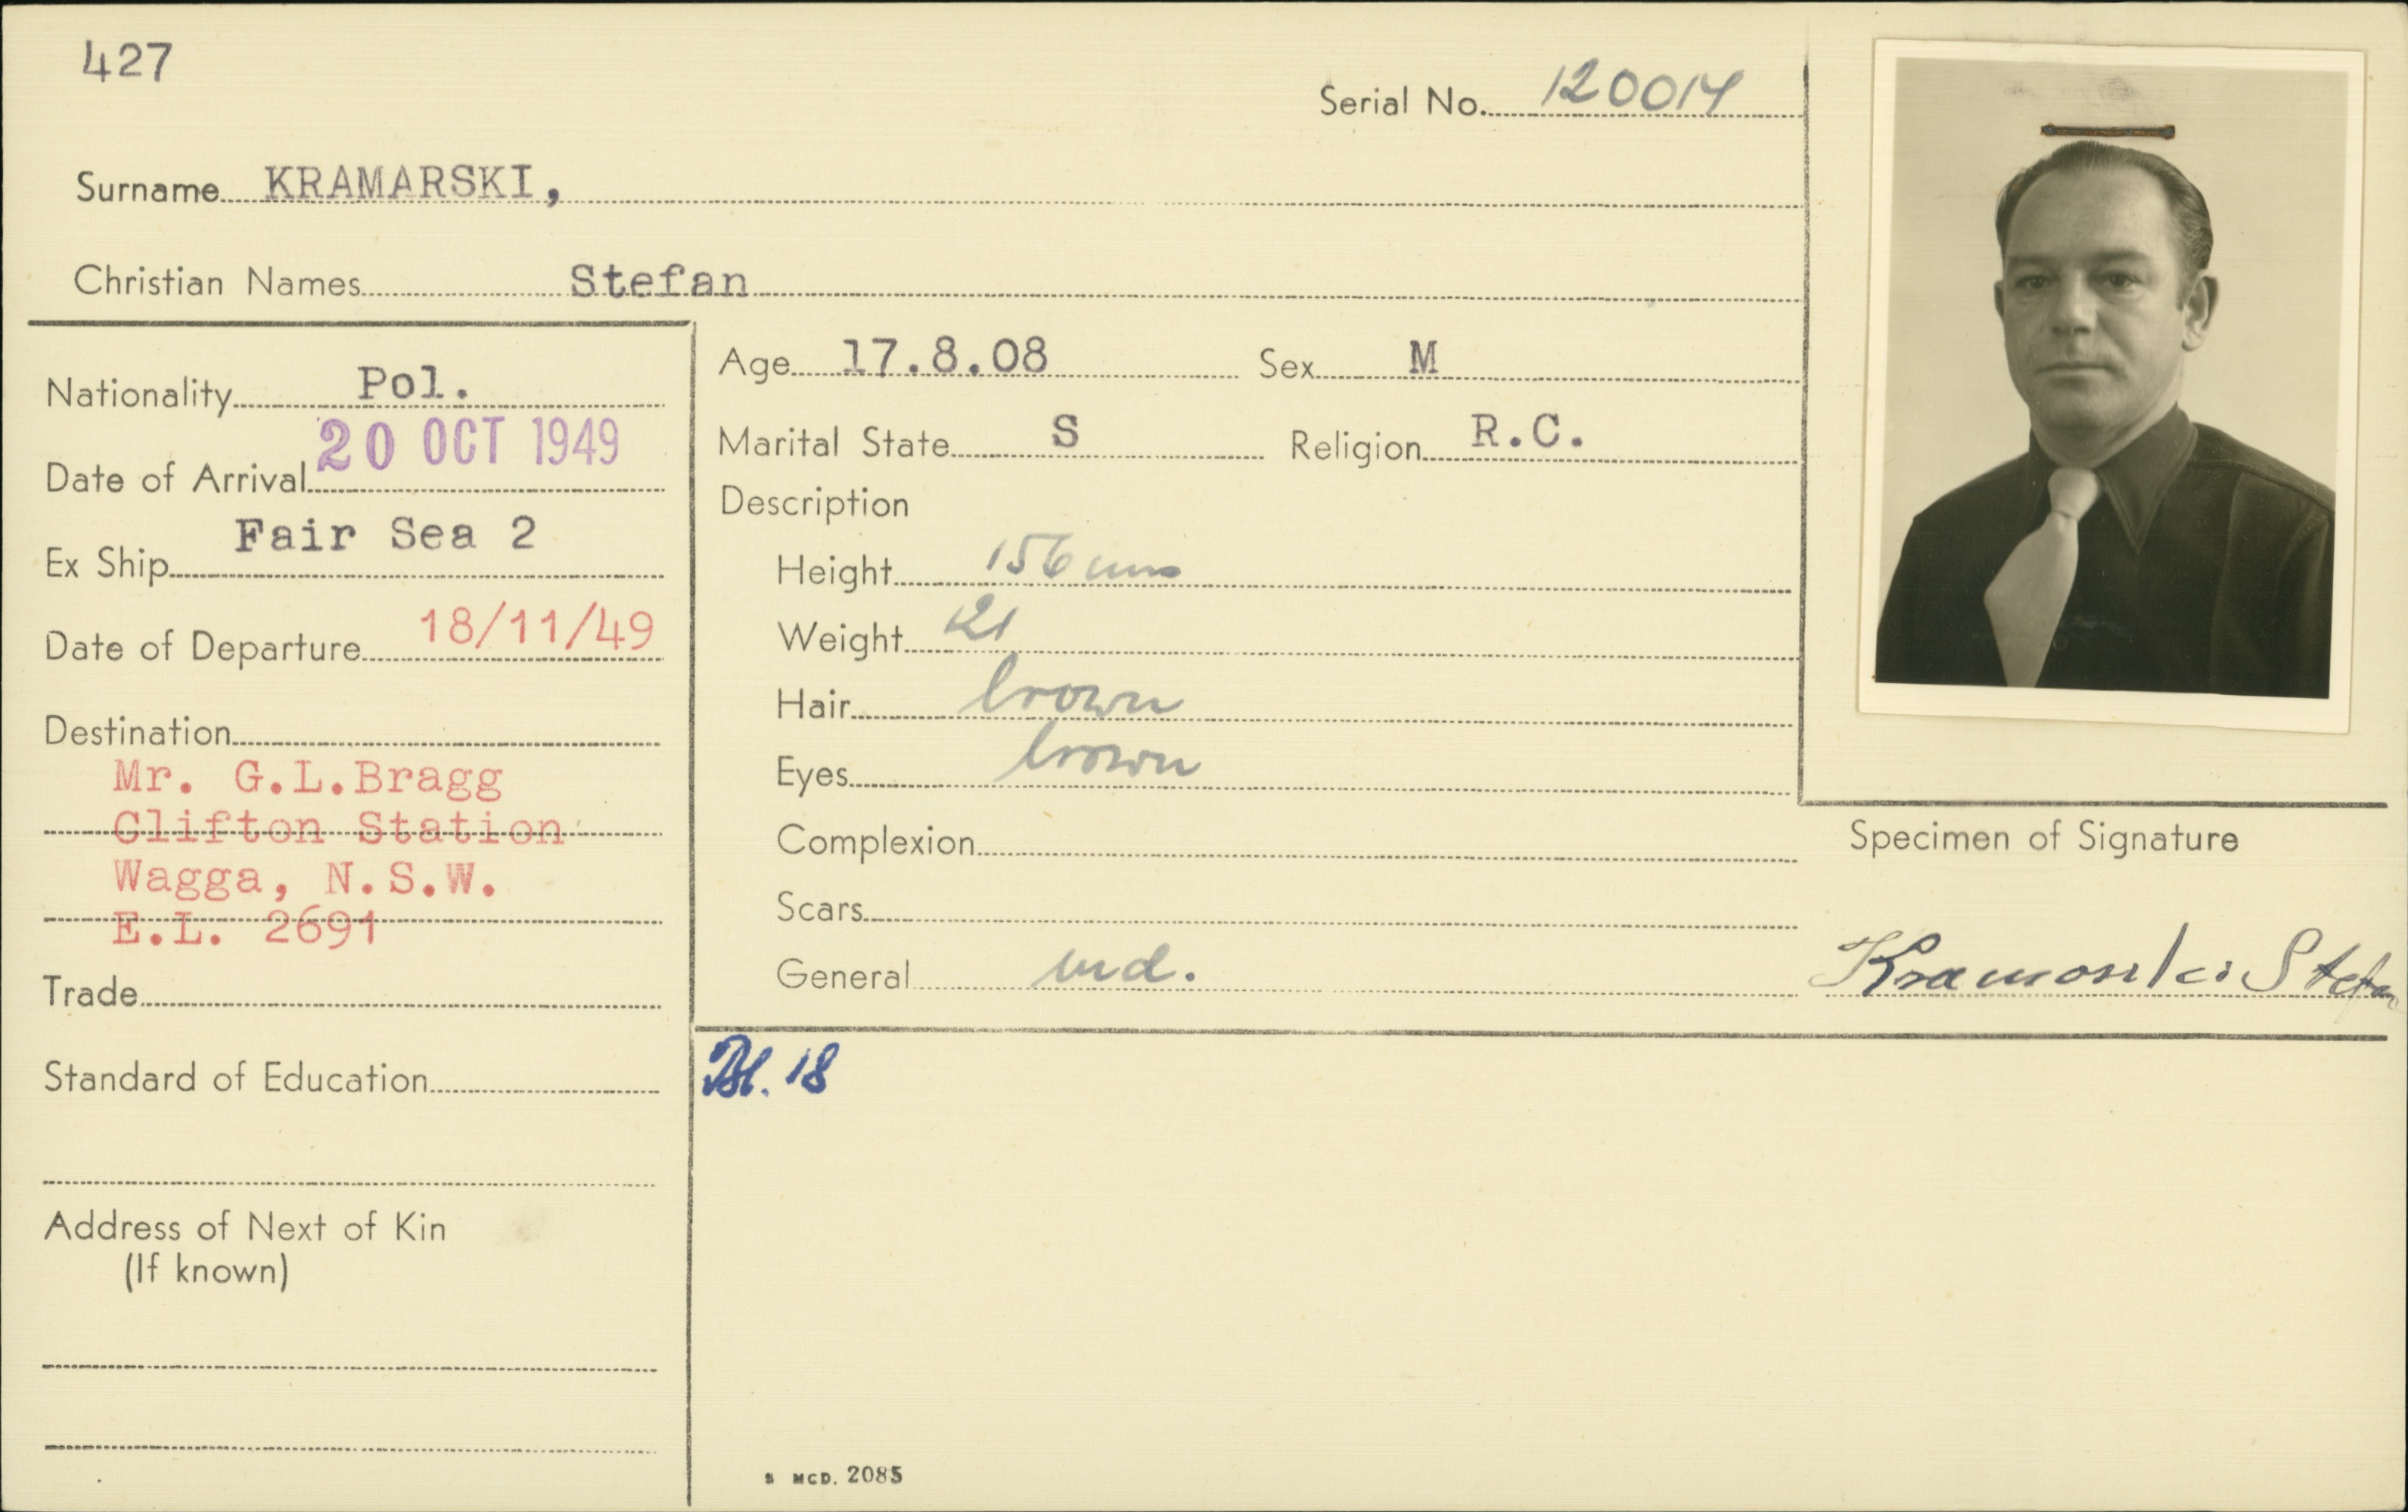 427
Serial No. 120014
Surname KRAMARSKI,
Christian Names Stefan
Nationality Pol.
Date of Arrival 20 OCT 1949
Ex Ship Fair Sea 2
Date of Departure 18/11/49
Destination
Mr. G.L.Bragg
Clifton Station
Wagga, N.S.W.
E.L. 2691
Trade
Standard of Education
Address of Next of Kin
(If known)
Age 17.8.08 Sex M
Marital State S Religion R.C.
Description
Height 156 cms
Weight 21
Hair brown
Eyes brown
Complexion
Scars
General md.
Specimen of Signature
Kramarski Stefan
Bl. 18
S MCD. 2085